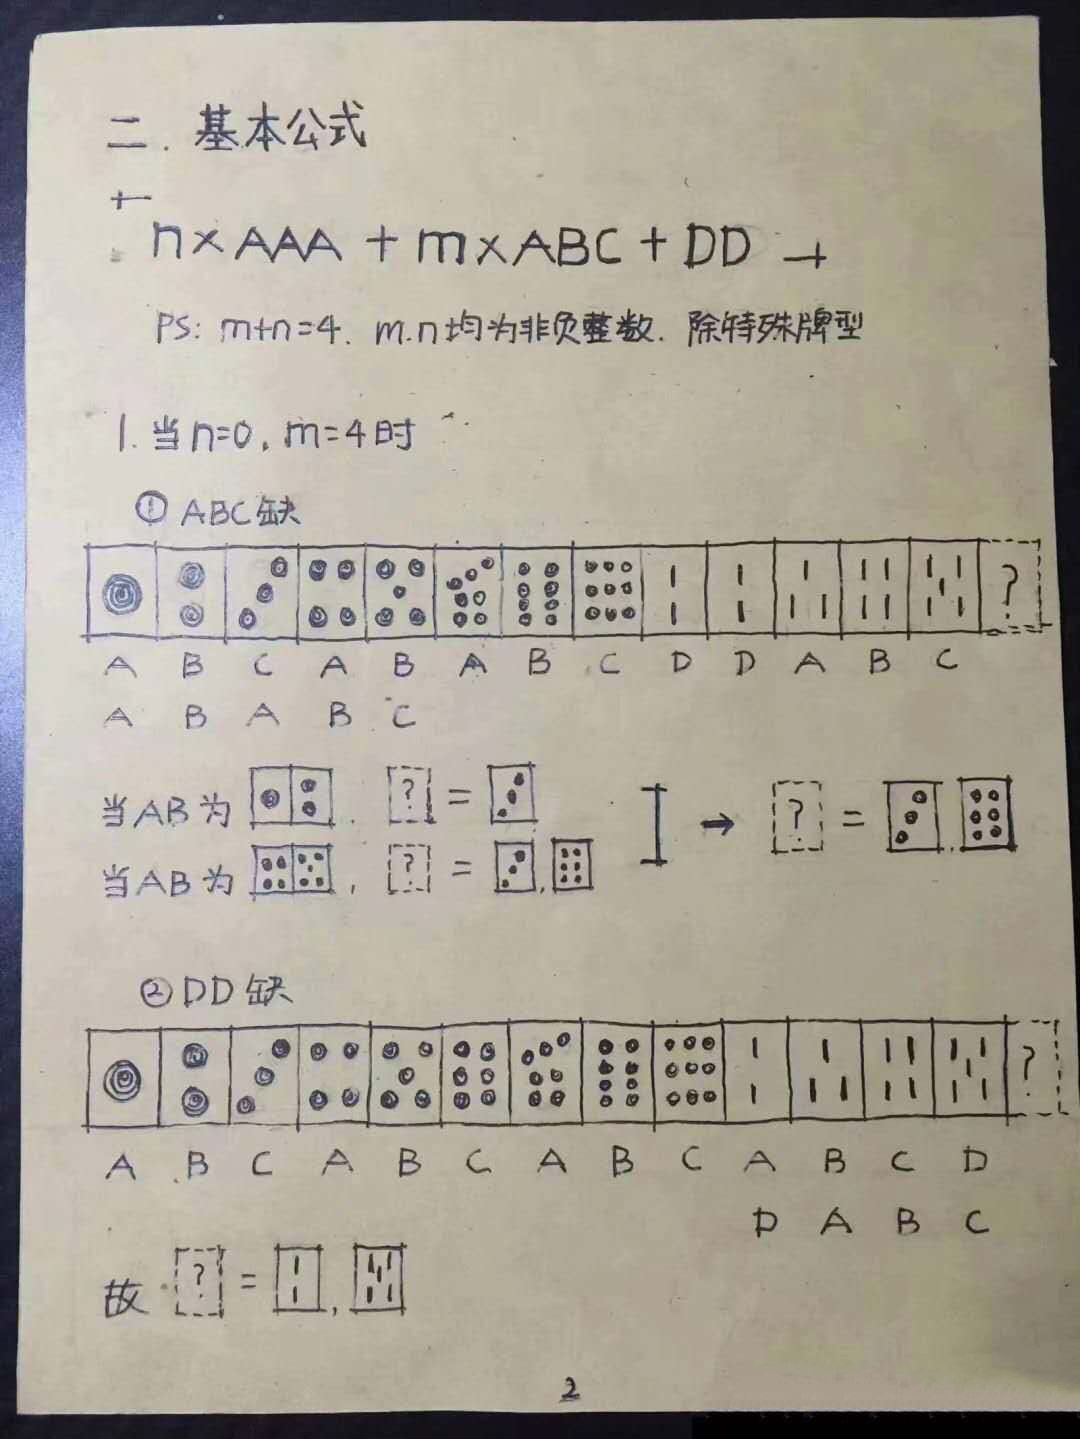 二. 基本公式
n×AAA + m×ABC + DD
PS: m+n=4. m.n均为非负整数. 除特殊牌型
1. 当n=0, m=4时
① ABC缺
?
A B C A B A B C D D A B C
A B A B C
当AB为 , ? = → ? = ,
当AB为 , ? = ,
② DD缺
?
A B C A B C A B C A B C D
D A B C
故 ? = ,
2